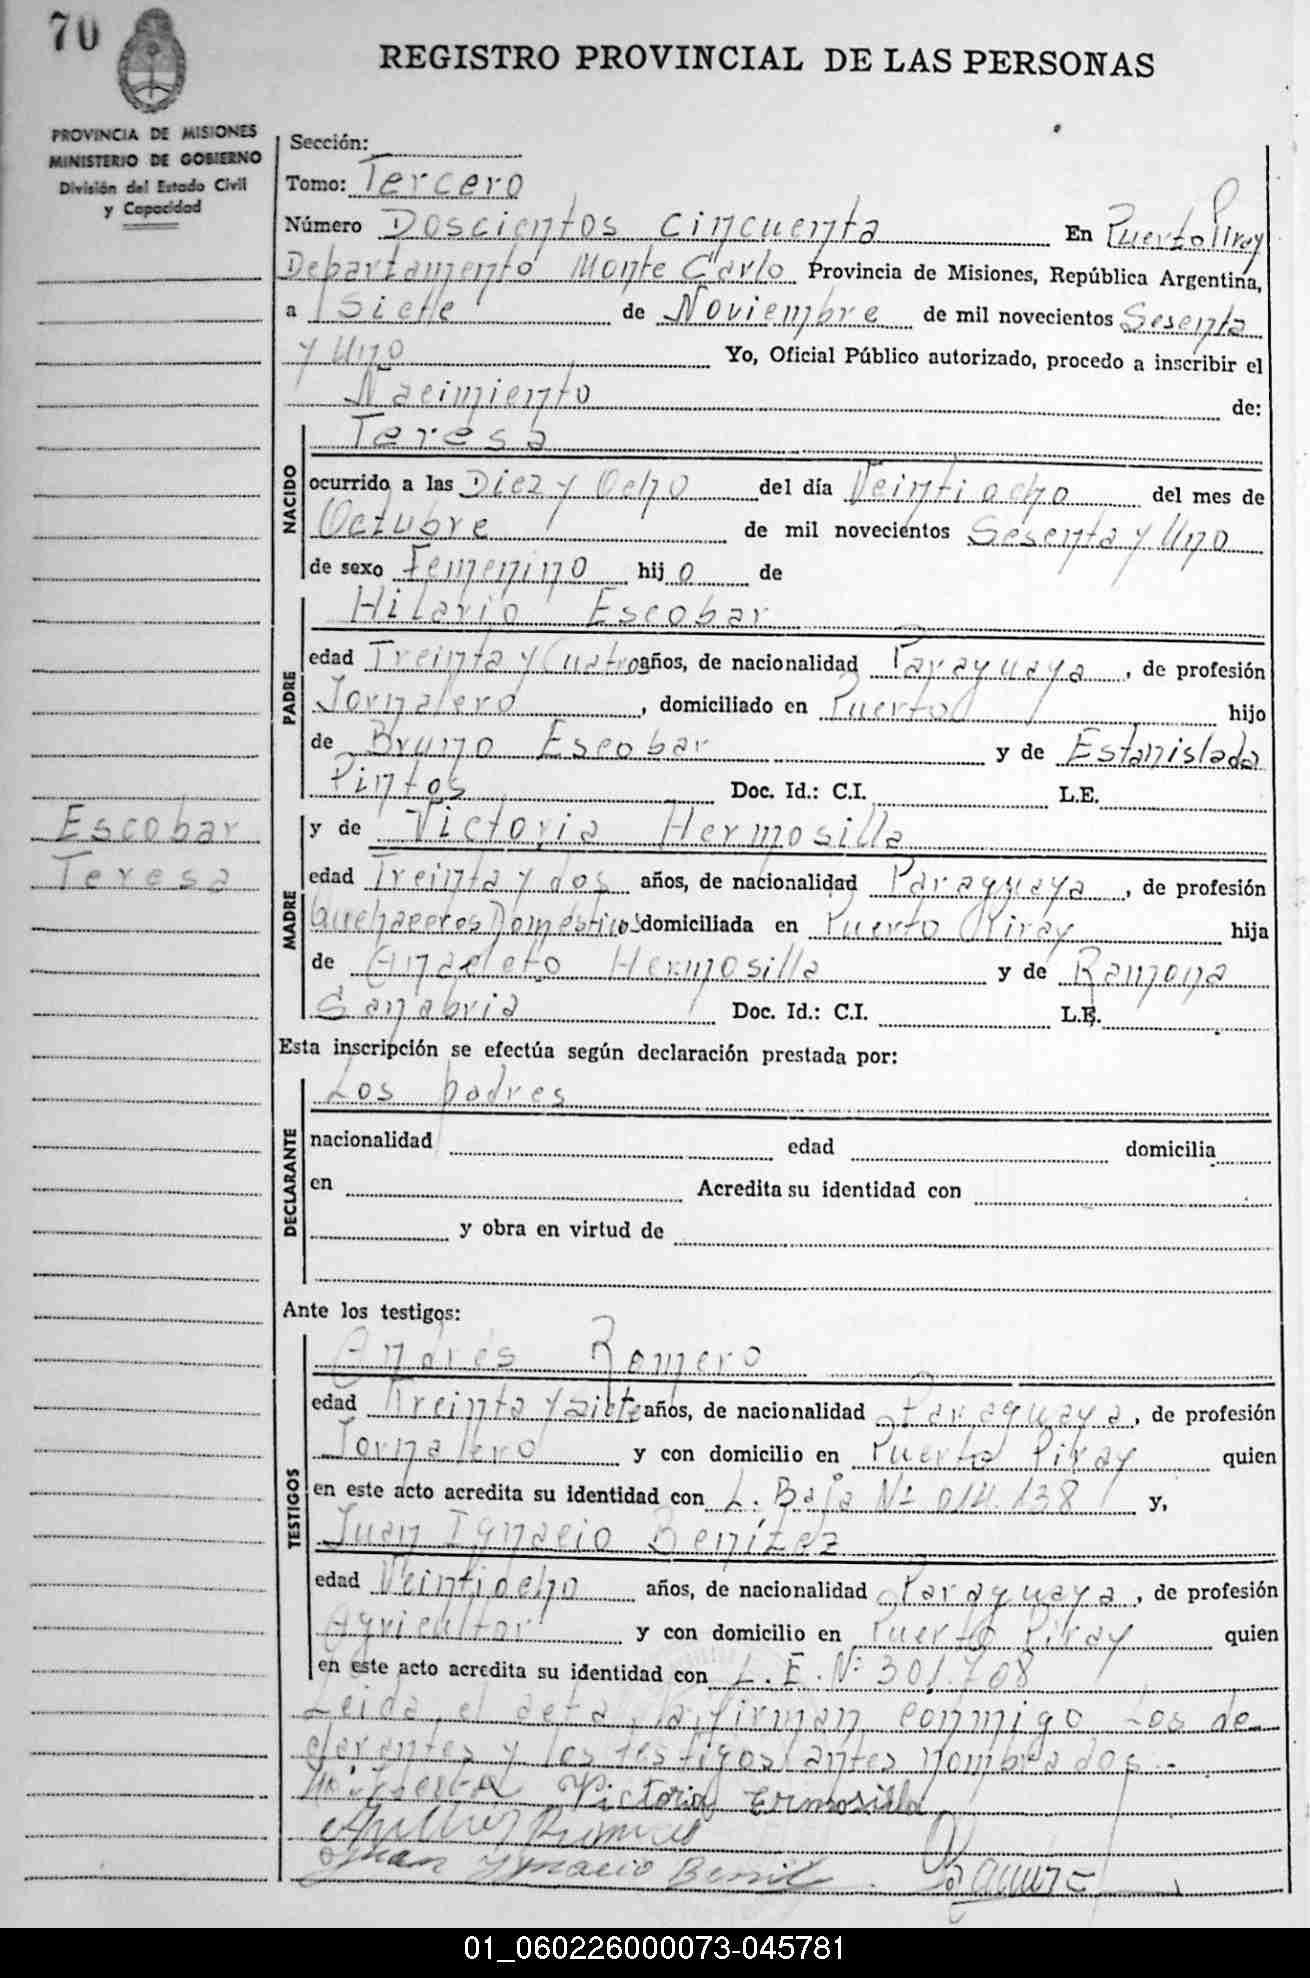 70
REGISTRO PROVINCIAL DE LAS PERSONAS
PROVINCIA DE MISIONES
MINISTERIO DE GOBIERNO
División del Estado Civil
y Capacidad
Sección:
Tomo: Tercero
Número Doscientos cincuenta En Puerto Piray
Departamento Monte Carlo Provincia de Misiones, República Argentina,
a Siete de Noviembre de mil novecientos Sesenta
y Uno Yo, Oficial Público autorizado, procedo a inscribir el
Nacimiento de:
NACIDO
Teresa
ocurrido a las Diez y Ocho del día Veintiocho del mes de
Octubre de mil novecientos Sesenta y Uno
de sexo Femenino hij o de
PADRE
Hilario Escobar
edad Treinta y Cuatro años, de nacionalidad Paraguaya, de profesión
Jornalero, domiciliado en Puerto hijo
de Bruno Escobar y de Estanislada
Pintos Doc. Id.: C.I. L.E.
Escobar
Teresa
MADRE
y de Victoria Hermosilla
edad Treinta y dos años, de nacionalidad Paraguaya, de profesión
Quehaceres Domésticos domiciliada en Puerto Piray hija
de Anacleto Hermosilla y de Ramona
Sanabria Doc. Id.: C.I. L.E.
Esta inscripción se efectúa según declaración prestada por:
DECLARANTE
Los padres
nacionalidad edad domicilia
en Acredita su identidad con
y obra en virtud de
Ante los testigos:
TESTIGOS
Andrés Romero
edad Treinta y siete años, de nacionalidad Paraguaya, de profesión
Jornalero y con domicilio en Puerto Piray quien
en este acto acredita su identidad con L. Baja Nº 014.138 y,
Juan Ignacio Benítez
edad Veintiocho años, de nacionalidad Paraguaya, de profesión
Agricultor y con domicilio en Puerto Piray quien
en este acto acredita su identidad con L.E. Nº 301.708
Leida el acta, la firman conmigo los de
clarantes y los testigos antes nombrados.-
Victoria Ermosilla
Juan Ygnacio Benitez
01_060226000073-045781